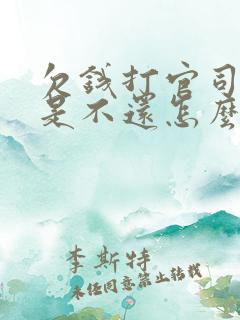 欠錢打官司
是不還怎麼
李斯特
未经同意禁止转载